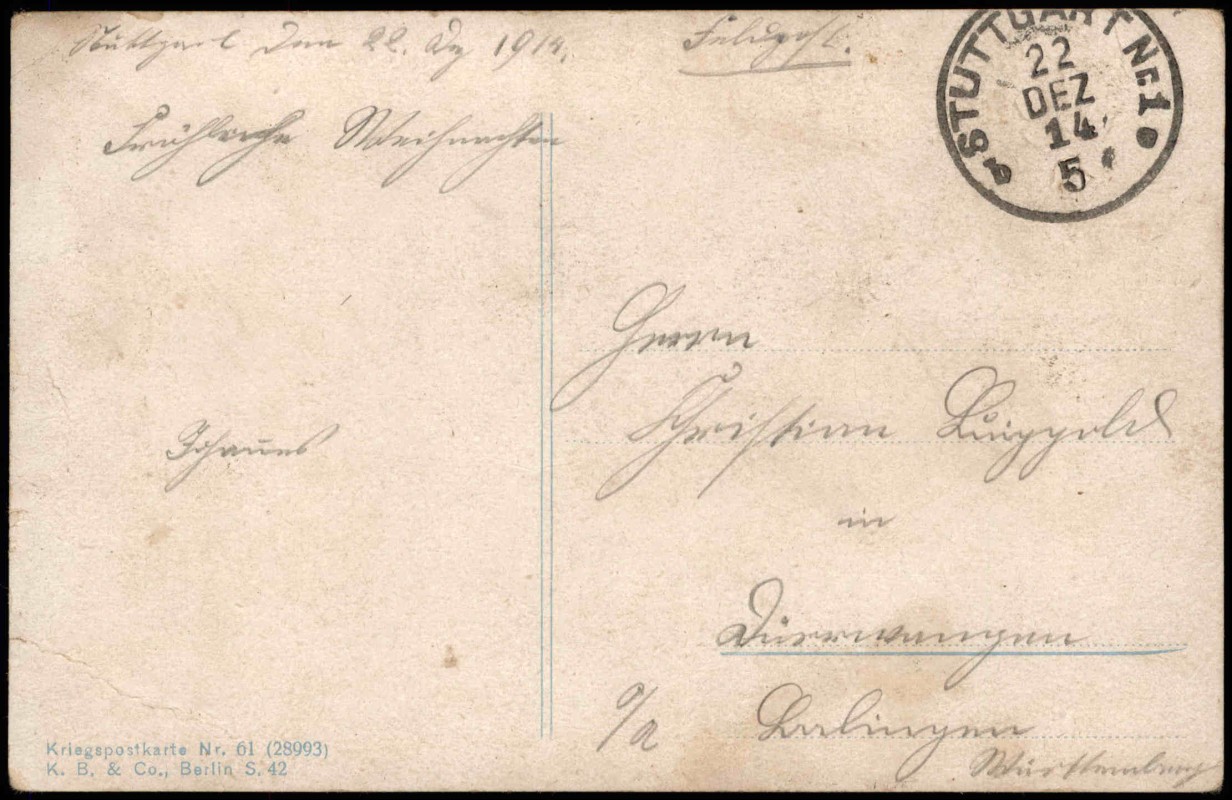 Stuttgart den 22. Dez 1914.
Feldpost.
STUTTGART Nr. 1
22
DEZ
14
5
b
Fröhliche Weihnachten
Herrn
Christian Luippold
Johannes
in
Dürrwangen
O/A Balingen
Württemberg
Kriegspostkarte Nr. 61 (28993)
K. B. & Co., Berlin S. 42